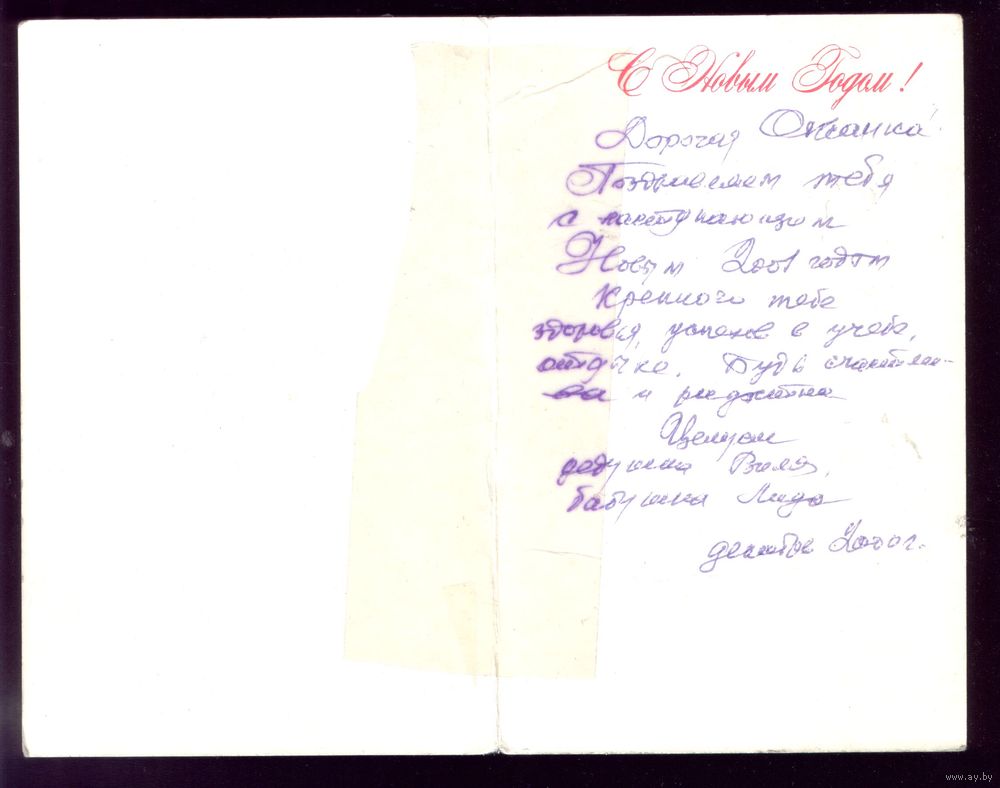 С Новым Годом!
Дорогая
Поздравляем тебя
с наступающим
Новым 2001 годом
Крепкого тебе
здоровья, успехов в учебе,
отдыха. Будь счастли-
ва и
Целуем
дедушка Валя,
бабушка Лида
декабрь 2000г.
www.ay.by